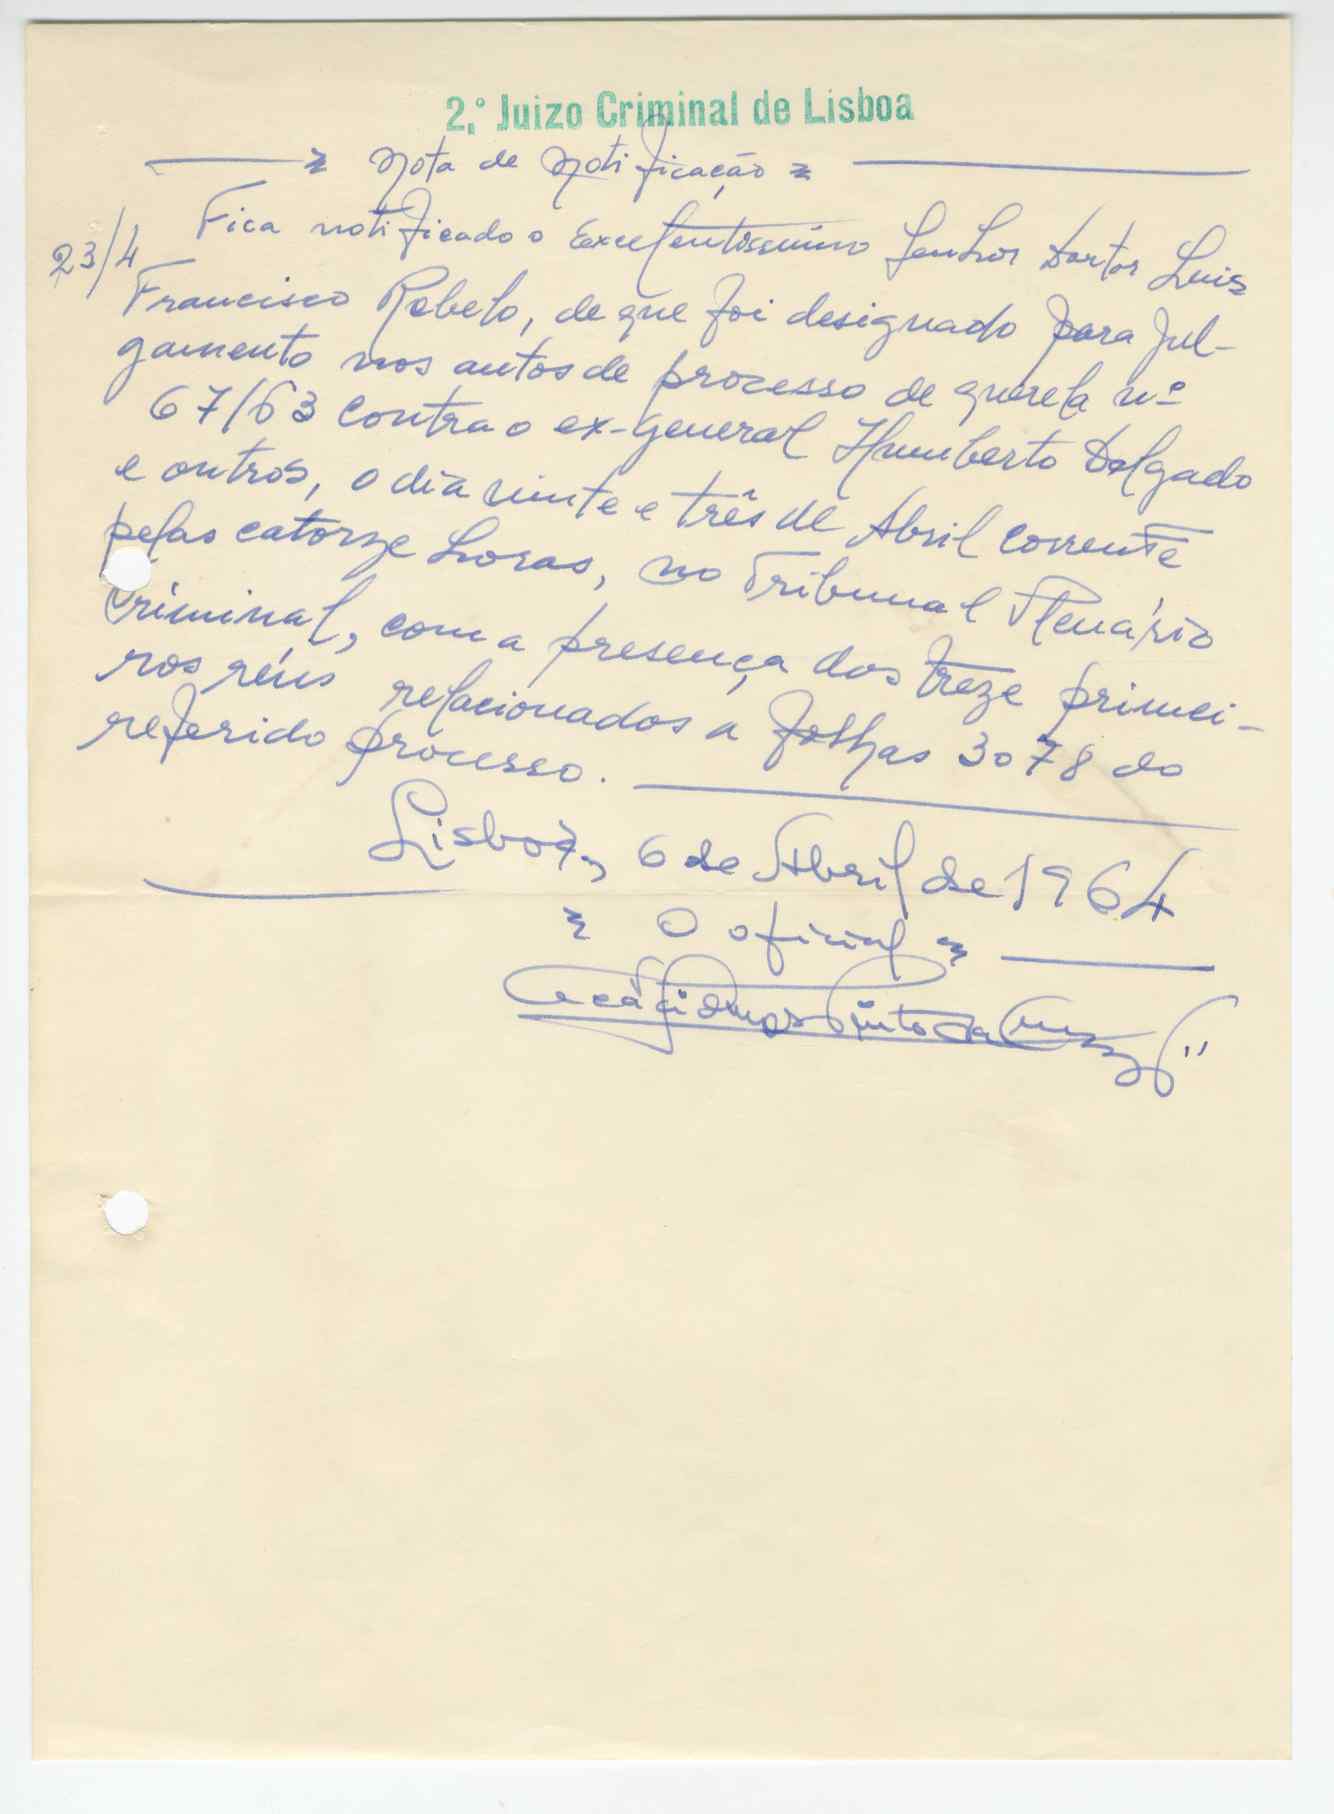 2.º Juizo Criminal de Lisboa
= Nota de Notificação =
23/4
Fica notificado o Excelentissimo Senhor Doutor Luis
Francisco Rebelo, de que foi designado para jul-
gamento nos autos de processo de querela nº
67/63 contra o ex-general Humberto Delgado
e outros, o dia vinte e três de Abril corrente
pelas catorze horas, no Tribunal Plenário
Criminal, com a presença dos treze primei-
ros réus relacionados a folhas 3078 do
referido processo.
Lisboa, 6 de Abril de 1964
= O oficial =
Pinto da